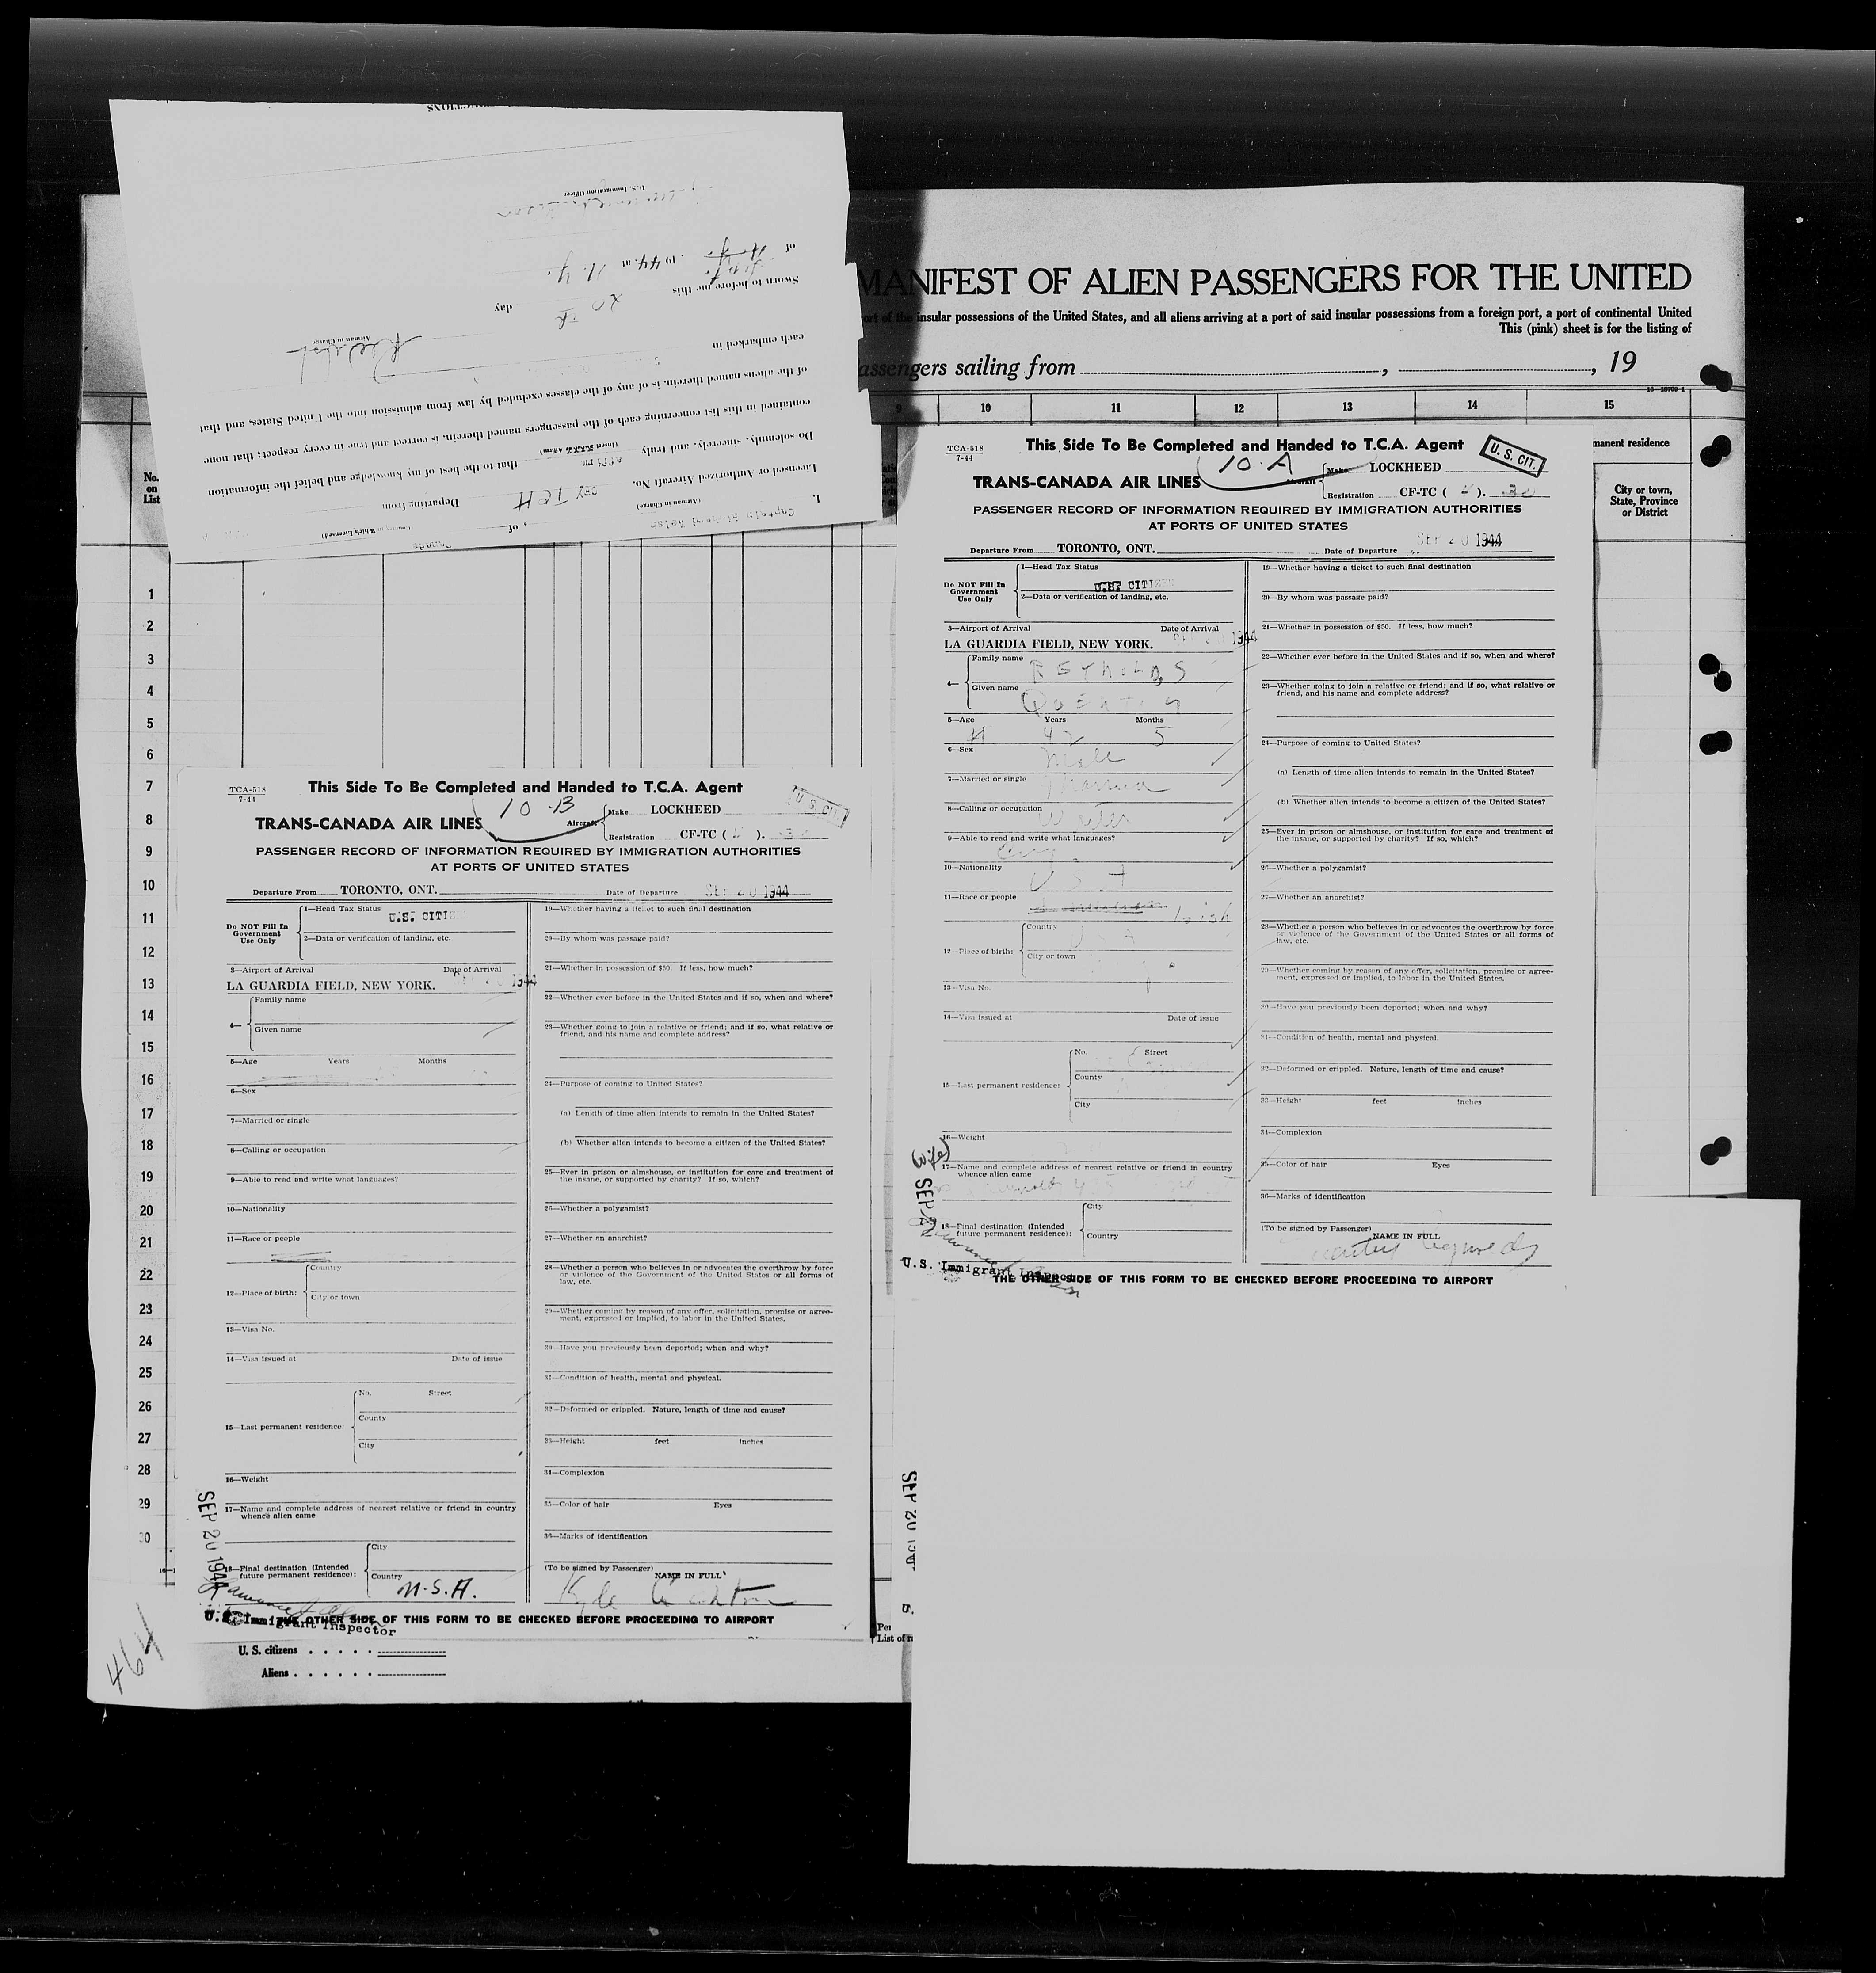 MANIFEST OF ALIEN PASSENGERS FOR THE UNITED
insular possessions of the United States, and all aliens arriving at a port of said insular possessions from a foreign port, a port of continental United
This (pink) sheet is for the listing of
passengers sailing from , , 19
10 11 12 13 14 15
manent residence
City or town,
State, Province
or District
No.
on
List
1
2
3
4
5
6
7
8
9
10
11
12
13
14
15
16
17
18
19
20
21
22
23
24
25
26
27
28
29
30
U. S. citizens
Aliens
464
I, Captain
(Airman in Charge)
of Canada
(Country in Which Licensed)
Licensed or Authorized Aircraft No. TCH Departing from
Do solemnly, sincerely, and truly that to the best of my knowledge and belief the information
contained in this list concerning each of the passengers named therein, is correct and true in every respect; that none
of the aliens named therein, is of any of the classes excluded by law from admission into the United States, and that
each embarked in
Airman in Charge
Sworn to before me this 20th day
of Sept. , 1944 at N.Y.
U.S. Immigration Officer
TCA-518
7-44
This Side To Be Completed and Handed to T.C.A. Agent
10-B
U. S. CIT.
TRANS-CANADA AIR LINES
Aircraft
Make LOCKHEED
Registration CF-TC ( ).
PASSENGER RECORD OF INFORMATION REQUIRED BY IMMIGRATION AUTHORITIES
AT PORTS OF UNITED STATES
Departure From TORONTO, ONT. Date of Departure SEP 20 1944
Do NOT Fill In
Government
Use Only
1—Head Tax Status
U.S. CITIZEN
2—Data or verification of landing, etc.
3—Airport of Arrival Date of Arrival
LA GUARDIA FIELD, NEW YORK. 1944
4—
Family name
Given name
5—Age Years Months
6—Sex
7—Married or single
8—Calling or occupation
9—Able to read and write what languages?
10—Nationality
11—Race or people
12—Place of birth:
Country
City or town
13—Visa No.
14—Visa issued at Date of issue
15—Last permanent residence:
No. Street
County
City
16—Weight
17—Name and complete address of nearest relative or friend in country
whence alien came
18—Final destination (Intended
future permanent residence):
City
Country
U.S.A.
19—Whether having a ticket to such final destination
20—By whom was passage paid?
21—Whether in possession of $50. If less, how much?
22—Whether ever before in the United States and if so, when and where?
23—Whether going to join a relative or friend; and if so, what relative or
friend, and his name and complete address?
24—Purpose of coming to United States?
(a) Length of time alien intends to remain in the United States?
(b) Whether alien intends to become a citizen of the United States?
25—Ever in prison or almshouse, or institution for care and treatment of
the insane, or supported by charity? If so, which?
26—Whether a polygamist?
27—Whether an anarchist?
28—Whether a person who believes in or advocates the overthrow by force
or violence of the Government of the United States or all forms of
law, etc.
29—Whether coming by reason of any offer, solicitation, promise or agree-
ment, expressed or implied, to labor in the United States.
30—Have you previously been deported; when and why?
31—Condition of health, mental and physical.
32—Deformed or crippled. Nature, length of time and cause?
33—Height feet inches
34—Complexion
35—Color of hair Eyes
36—Marks of identification
(To be signed by Passenger)
NAME IN FULL
Kyle Crichton
SEP 20 1944
U.S. Immigrant Inspector
THE OTHER SIDE OF THIS FORM TO BE CHECKED BEFORE PROCEEDING TO AIRPORT
TCA-518
7-44
This Side To Be Completed and Handed to T.C.A. Agent
10-A
U. S. CIT.
TRANS-CANADA AIR LINES
Aircraft
Make LOCKHEED
Registration CF-TC ( ). 30
PASSENGER RECORD OF INFORMATION REQUIRED BY IMMIGRATION AUTHORITIES
AT PORTS OF UNITED STATES
Departure From TORONTO, ONT. Date of Departure SEP 20 1944
Do NOT Fill In
Government
Use Only
1—Head Tax Status
U.S. CITIZEN
2—Data or verification of landing, etc.
3—Airport of Arrival Date of Arrival
LA GUARDIA FIELD, NEW YORK. 1944
4—
Family name REYNOLDS
Given name Quentin
5—Age Years Months
42 5
6—Sex Male
7—Married or single Married
8—Calling or occupation Writer
9—Able to read and write what languages?
Eng
10—Nationality U S A
11—Race or people Irish
12—Place of birth:
Country USA
City or town
13—Visa No.
14—Visa issued at Date of issue
15—Last permanent residence:
No. Street
County
City
16—Weight
(wife)
17—Name and complete address of nearest relative or friend in country
whence alien came
18—Final destination (Intended
future permanent residence):
City
Country
19—Whether having a ticket to such final destination
20—By whom was passage paid?
21—Whether in possession of $50. If less, how much?
22—Whether ever before in the United States and if so, when and where?
23—Whether going to join a relative or friend; and if so, what relative or
friend, and his name and complete address?
24—Purpose of coming to United States?
(a) Length of time alien intends to remain in the United States?
(b) Whether alien intends to become a citizen of the United States?
25—Ever in prison or almshouse, or institution for care and treatment of
the insane, or supported by charity? If so, which?
26—Whether a polygamist?
27—Whether an anarchist?
28—Whether a person who believes in or advocates the overthrow by force
or violence of the Government of the United States or all forms of
law, etc.
29—Whether coming by reason of any offer, solicitation, promise or agree-
ment, expressed or implied, to labor in the United States.
30—Have you previously been deported; when and why?
31—Condition of health, mental and physical.
32—Deformed or crippled. Nature, length of time and cause?
33—Height feet inches
34—Complexion
35—Color of hair Eyes
36—Marks of identification
(To be signed by Passenger)
NAME IN FULL
Quentin Reynolds
SEP 20
U.S. Immigrant Inspector
THE OTHER SIDE OF THIS FORM TO BE CHECKED BEFORE PROCEEDING TO AIRPORT
SEP 20